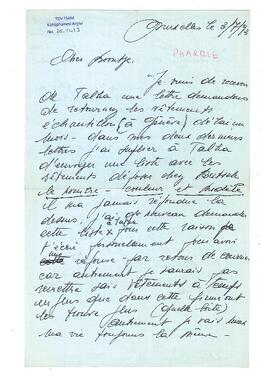 TDV İSAM
Kütüphanesi Arşivi
No
Bruxelles le
PHARRIE
Cher
Je viens de recevoir
de Talha une lettre demandant
de retourner les vêtements
échantillon (à Genève) délai un
mois - dans mes deux derniers
lettres j'ai supplier à Talha
d'envoyer une liste avec les
vêtements déposés chez
le nombre - couleur et modèle
il m'a jamais répondu la
dessus, j'ai de nouveau demandé
cette liste à Talha pour cette raison je
t'écris personnellement pour avoir
une réponse par retour de courrier
car autrement je saurais pas
remettre ces vêtements à temps
en plus que dans cette firme ont
les trouve plus (quelle boîte)
autrement je vais
ma vie toujours la même -